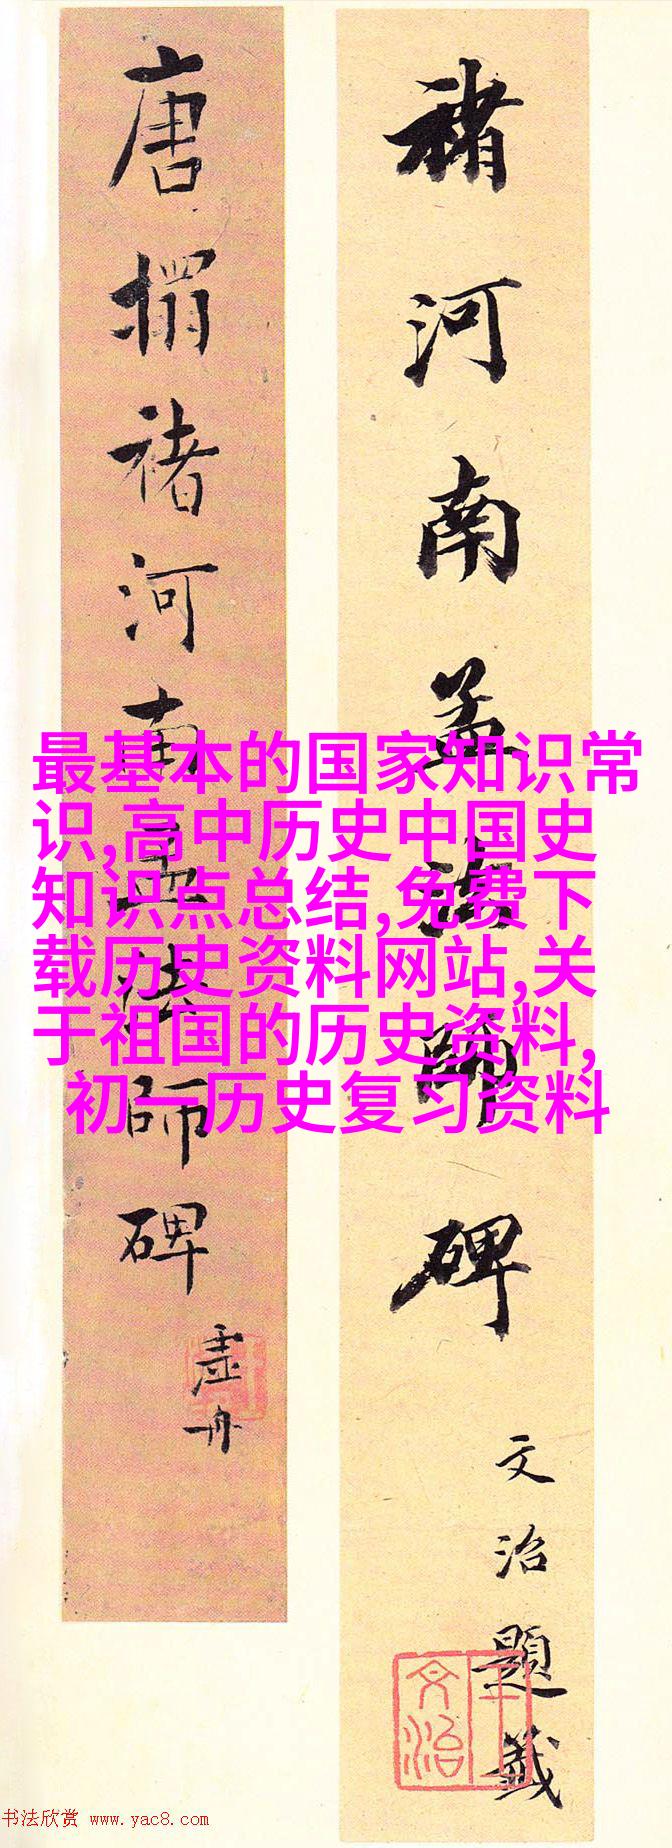 褚河南孟法師碑
文治題籤
王文治
唐搨褚河南孟法師碑
虛舟
最基本的国家知识常
识,高中历史中国史
知识点总结,免费下
载历史资料网站,关
于祖国的历史资料,
初一历史复习资料
书法欣赏 www.yac8.com